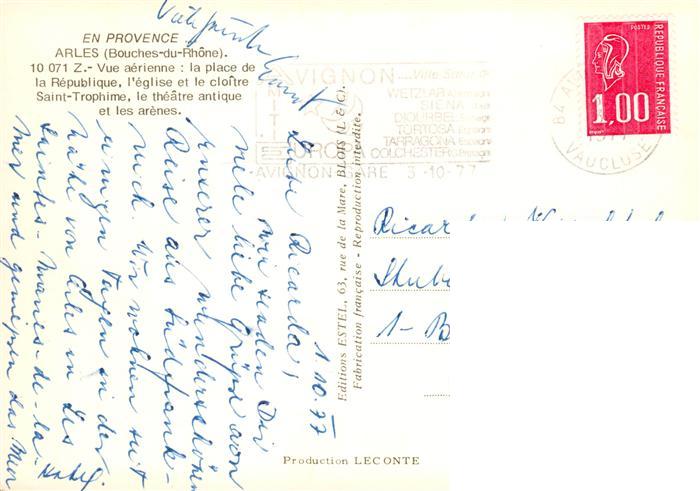 EN PROVENCE
ARLES (Bouches-du-Rhône).
10 071 Z.- Vue aérienne : la place de
la République, l'église et le cloître
Saint-Trophime, le théâtre antique
et les arènes.
AVIGNON .... Ville Sœur de
WETZLAR Allemagne
SIENA Italie
DIOURBEL
TORTOSA Espagne
TARRAGONA Espagne
COLCHESTER
EUROPA
AVIGNON GARE 3-10-77
POSTES
REPUBLIQUE FRANÇAISE
1,00
84 AV
1977
VAUCLUSE
Editions ESTEL, 63, rue de la Mare, BLOIS (L.&C).
Fabrication française - Reproduction interdite.
1. 10. 77
Liebe Ricarda!
Wir senden Dir
viele liebe Grüße von
unserer wunderschönen
Reise aus Südfrank-
reich. Wir wohnen seit
einigen Tagen in der
Nähe von Arles in Les
Saintes-Maries-de-la
Mer und genießen das Meer
Ricard
Shube
1-B
Production LECONTE